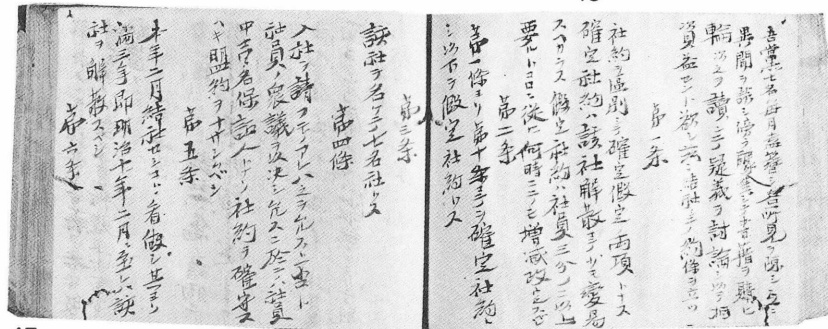 吾黨七名毎月益簪シ各所見ヲ陳シ交ニ
異聞ヲ談シ傍ラ醵金シテ書籍ヲ購ヒ
輪次之ヲ讀ミテ疑義ヲ討論シ以テ相
資益セント欲シ茲ニ結社シテ約條ヲ立ツ
第一条
社約ヲ區別シテ確定假定ノ両項トナス
確定社約ハ該社解散ニ至ルマテ変易
スヘカラス假定社約ハ社員三分ノ二以上
要ルトコロニ従ヒ何時ニテモ増減改定スヘシ
第二条
第一條ヨリ第十条ニテヲ確定社約ト
シ以下ヲ假定社約トス
第三条
該社ヲ名ケテ七名社トス
第四條
入社ヲ請フモノアレハ之ヲ允ス
社員ノ衆議ヲ以決シ允スニ於テハ社員
中壱名保証人トナシ社約ヲ確守ス
ヘキ盟約ヲナサシムベシ
第五条
本年二月結社セシコトト看做シ其ヨリ
満三年即明治十年二月ニ至レハ該
社ヲ解散スベシ
第六条